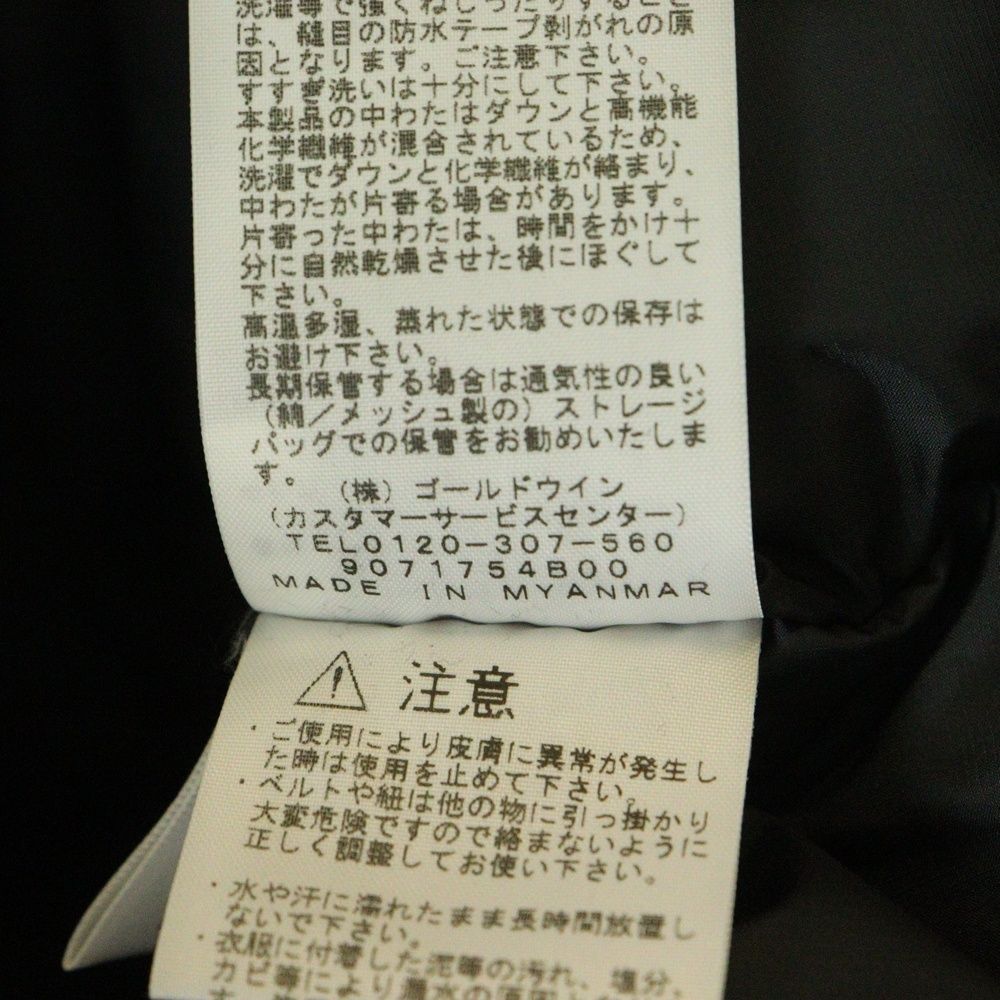 洗濯等で強くねじったりすること
は、縫目の防水テープ剥がれの原
因となります。ご注意下さい。
すすぎ洗いは十分にして下さい。
本製品の中わたはダウンと高機能
化学繊維が混合されているため、
洗濯でダウンと化学繊維が絡まり、
中わたが片寄る場合があります。
片寄った中わたは、時間をかけ十
分に自然乾燥させた後にほぐして
下さい。
高温多湿、蒸れた状態での保存は
お避け下さい。
長期保管する場合は通気性の良い
(綿/メッシュ製の)ストレージ
バッグでの保管をお勧めいたしま
す。
(株)ゴールドウイン
(カスタマーサービスセンター)
TEL0120-307-560
9071754B00
MADE IN MYANMAR
注意
・ご使用により皮膚に異常が発生し
た時は使用を止めて下さい。
・ベルトや紐は他の物に引っ掛かり
大変危険ですので絡まないように
正しく調整してお使い下さい。
・水や汗に濡れたまま長時間放置し
ないで下さい。
・衣服に付着した泥等の汚れ、塩分、
カビ等により漏水の原因と